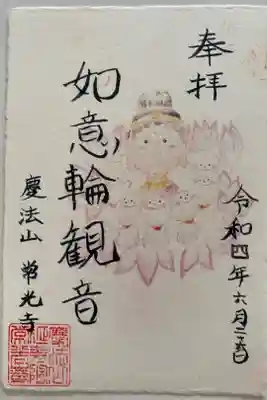 奉拝
令和四年六月二五日
如意輪観音
慶法山
光寺